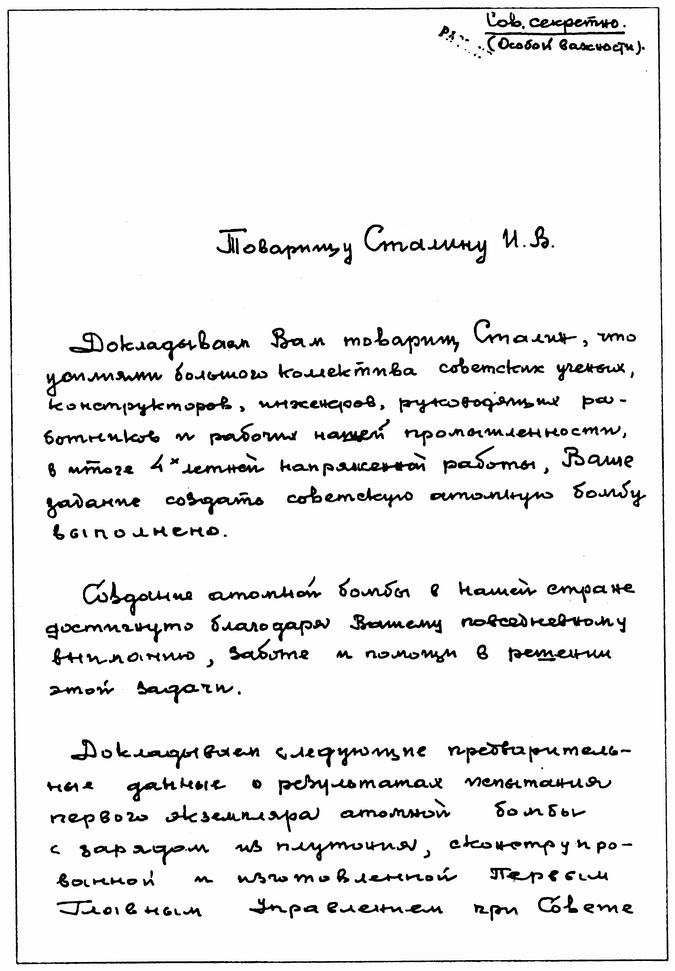 Сов. секретно.
(Особой важности).
Товарищу Сталину И.В.
Докладываем Вам товарищ Сталин, что
усилиями большого коллектива советских ученых,
конструкторов, инженеров, руководящих ра-
ботников и рабочих нашей промышленности,
в итоге 4х летней напряженной работы, Ваше
задание создать советскую атомную бомбу
выполнено.
Создание атомной бомбы в нашей стране
достигнуто благодаря Вашему повседневному
вниманию, заботе и помощи в решении
этой задачи.
Докладываем следующие предваритель-
ные данные о результатах испытания
первого экземпляра атомной бомбы
с зарядом из плутония, сконструиро-
ванной и изготовленной Первым
Главным Управлением при Совете